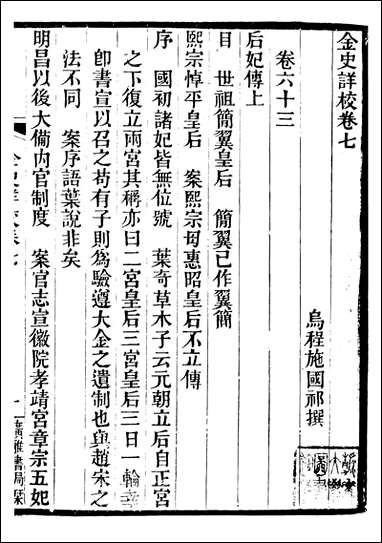 金史詳校卷七
烏程施國祁撰
卷六十三
后妃傳上
目　世祖簡翼皇后　簡翼已作翼簡
熙宗悼平皇后　案熙宗母惠昭皇后不立傳
序　國初諸妃皆無位號　葉奇草木子云元朝立后自正宮
之下復立兩宮其稱亦曰二宮皇后三宮皇后三日一輪幸
卽書宣以召之苟有子則爲驗遵大金之遺制也與趙宋之
法不同　案序語葉說非矣
明昌以後大備内官制度　案官志宣徽院孝靖宮章宗五妃
金史詳校卷七
一
廣雅書局栞